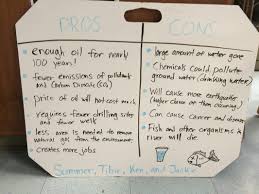 PROS
• enough oil for nearly
100 years!
• fewer emissions of pollutant
and Carbon Dioxide (CO2)
• price of oil will not cost much
• requires fewer drilling sites
and fewer wells
• less area is needed to remove
natural gas from the environment
• Creates more jobs
CONS
• large amount of water gone
• Chemicals could pollute
ground water (drinking water)
• Will cause more earthquakes
(higher chance of them occurring)
• Can cause cancer and disease
• Fish and other organisms in
rivers will die
Summer, Ken, and Jackie